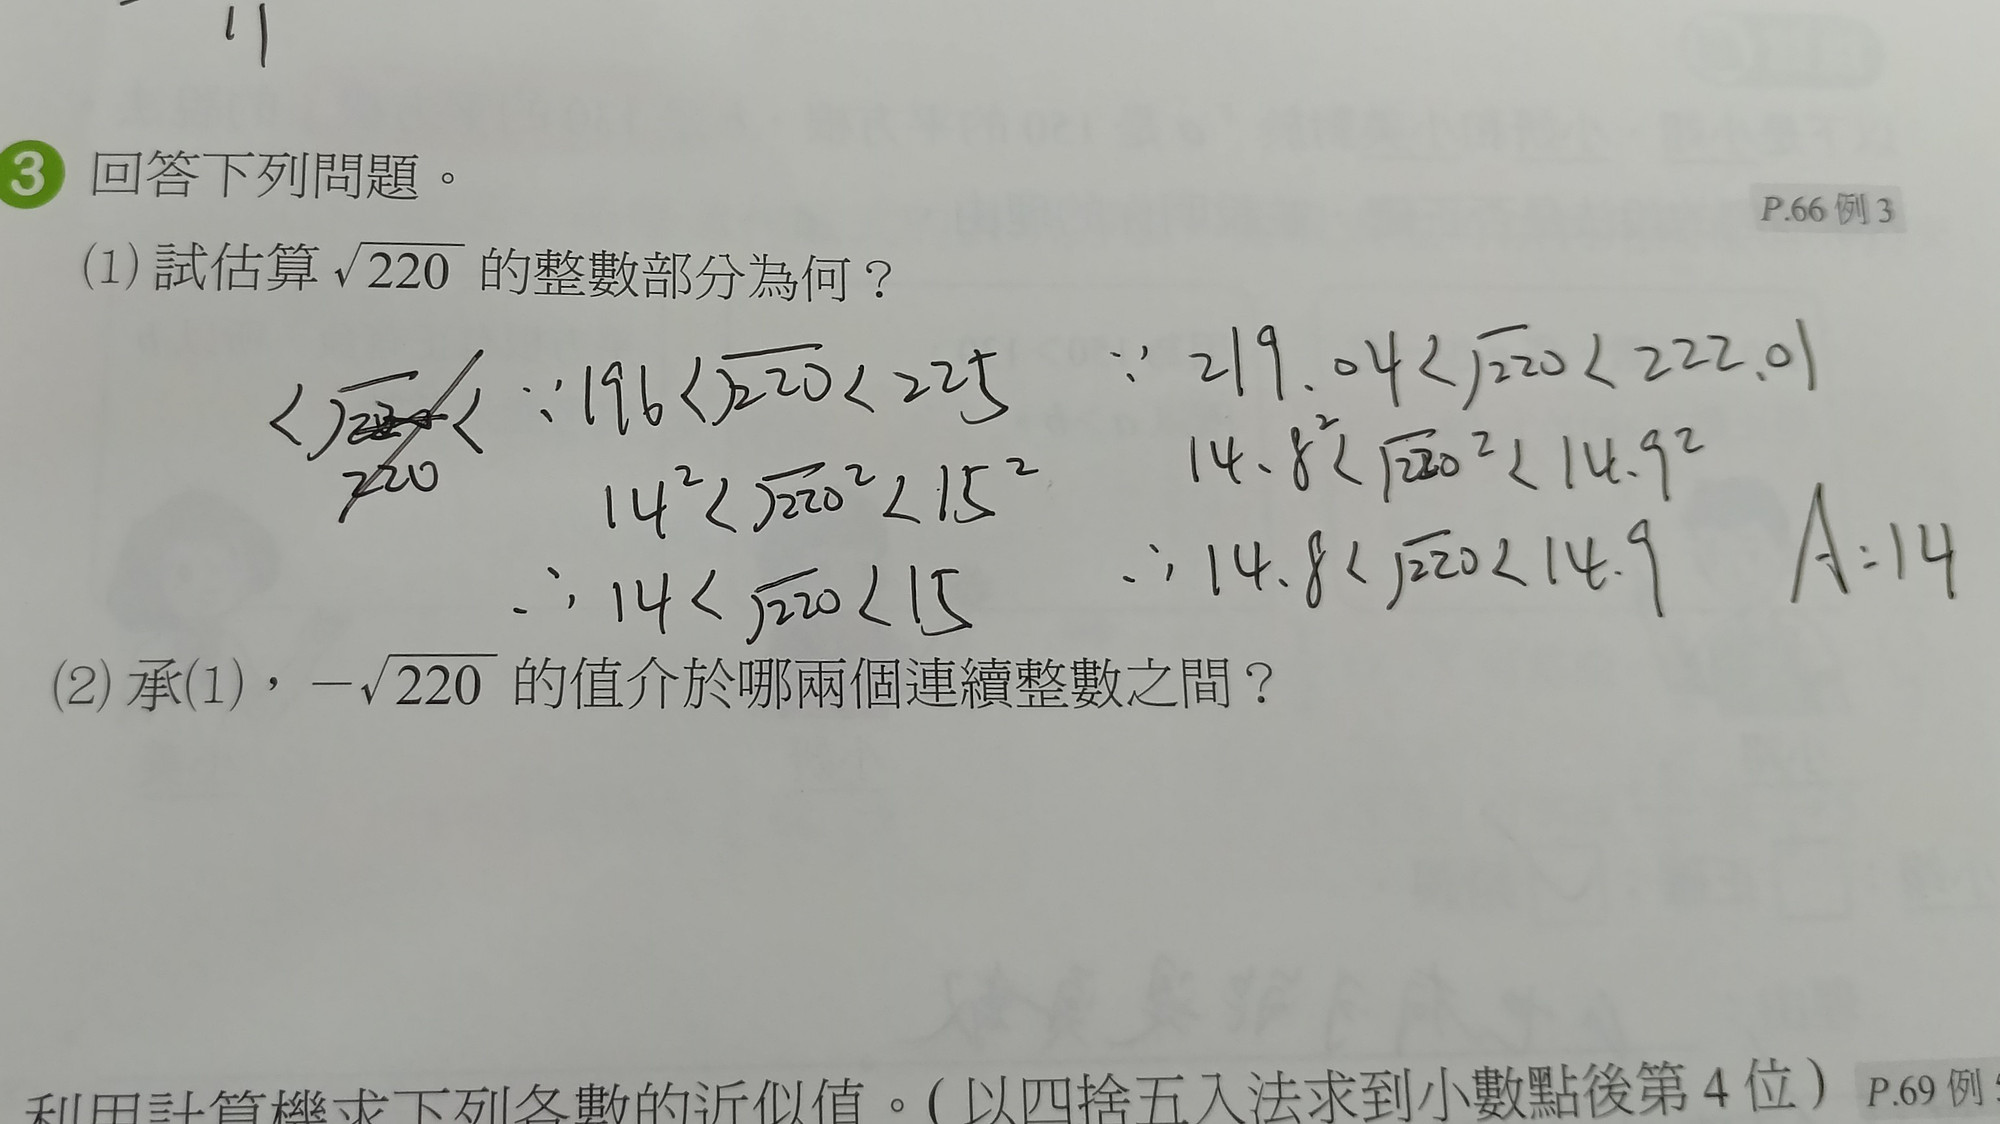 11
3 回答下列問題。
P.66 例3
(1) 試估算 √220 的整數部分為何？
∵ 196 < √220 < 225
14² < √220² < 15²
∴ 14 < √220 < 15
∵ 219.04 < √220 < 222.01
14.8² < √220² < 14.9²
∴ 14.8 < √220 < 14.9
A:14
< √ <
220
(2) 承(1)，－√220 的值介於哪兩個連續整數之間？
利用計算機求下列各數的近似值。(以四捨五入法求到小數點後第 4 位)
P.69 例